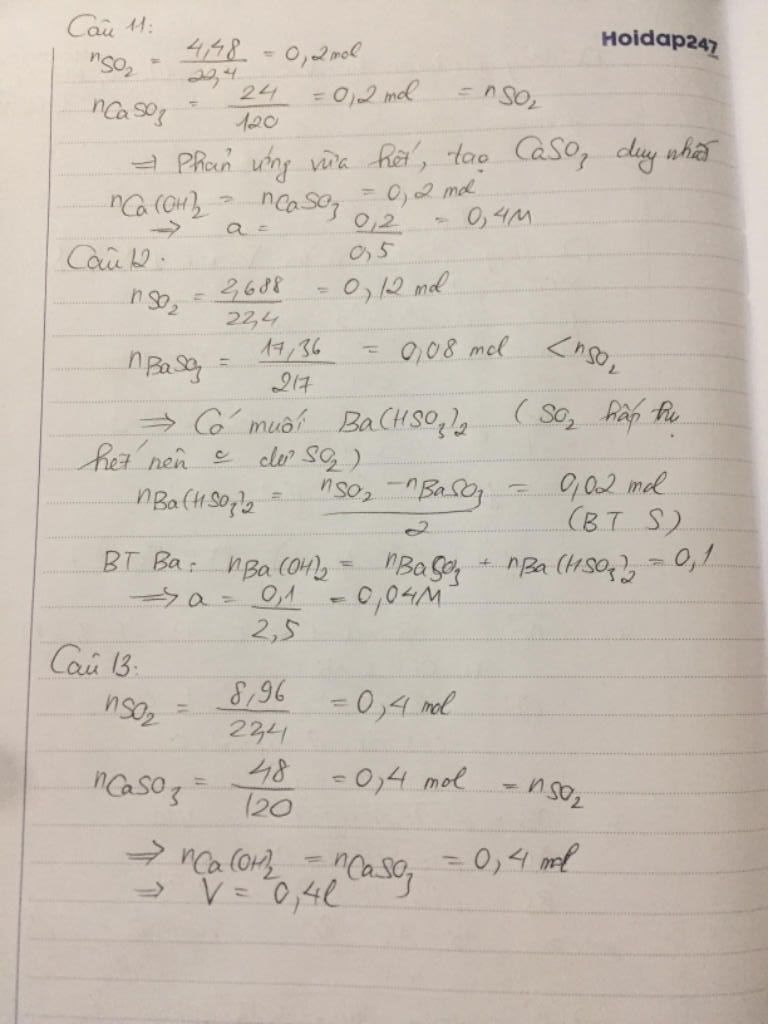 Câu 11:
Hoidap247
nSO₂ = 4,48/22,4 = 0,2 mol
nCaSO₃ = 24/120 = 0,2 mol = nSO₂
⇒ Phản ứng vừa hết, tạo CaSO₃ duy nhất
nCa(OH)₂ = nCaSO₃ = 0,2 mol
⇒ a = 0,2/0,5 = 0,4M
Câu 12:
nSO₂ = 2,688/22,4 = 0,12 mol
nBaSO₃ = 17,36/217 = 0,08 mol < nSO₂
⇒ Có muối Ba(HSO₃)₂ (SO₂ hấp thụ
hết nên dư SO₂)
nBa(HSO₃)₂ = (nSO₂ - nBaSO₃)/2 = 0,02 mol
(BT S)
BT Ba: nBa(OH)₂ = nBaSO₃ + nBa(HSO₃)₂ = 0,1
⇒ a = 0,1/2,5 = 0,04M
Câu 13:
nSO₂ = 8,96/22,4 = 0,4 mol
nCaSO₃ = 48/120 = 0,4 mol = nSO₂
⇒ nCa(OH)₂ = nCaSO₃ = 0,4 mol
⇒ V = 0,4l